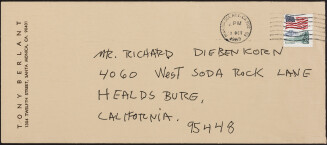 TONY BERLANT
1304 TWELFTH STREET, SANTA MONICA, CA. 90401
PM
MR. RICHARD DIEBENKORN
4060 WEST SODA ROCK LANE
HEALDSBURG,
CALIFORNIA.
95448